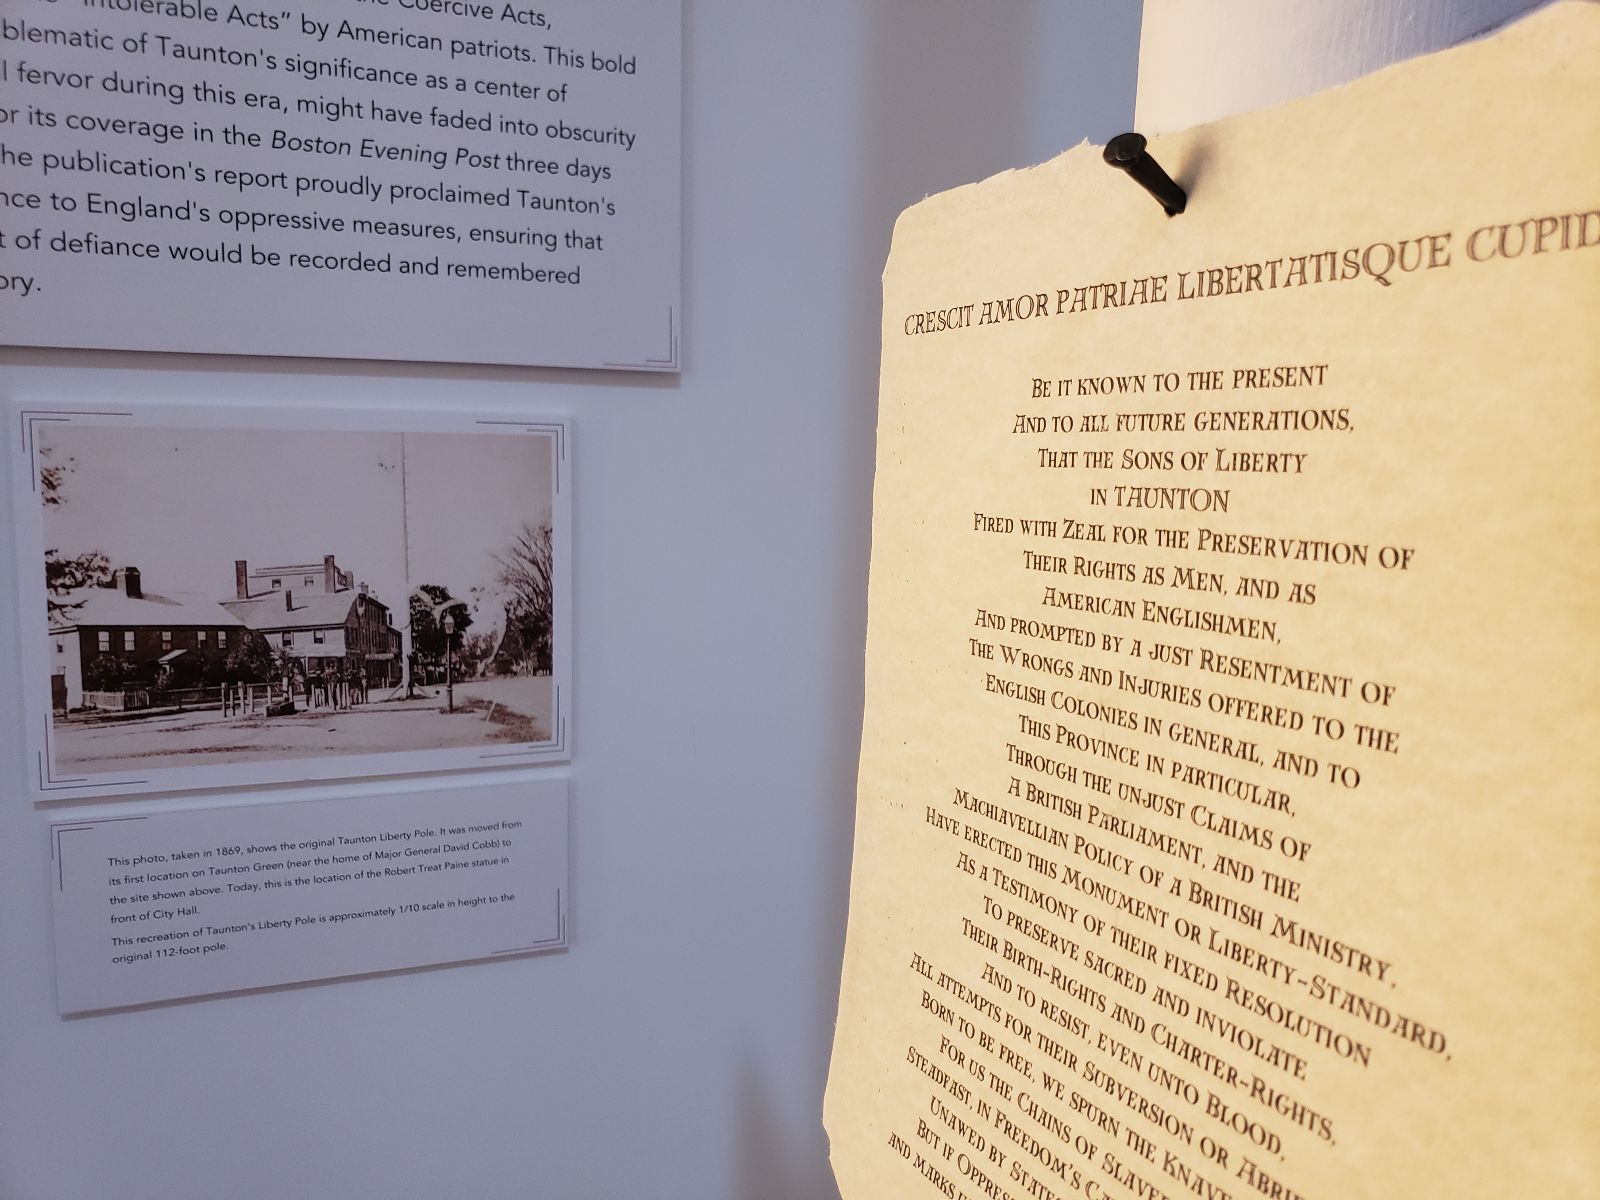 Coercive Acts,
"Intolerable Acts" by American patriots. This bold
of Taunton's significance as a center of
fervor during this era, might have faded into obscurity
its coverage in the Boston Evening Post three days
publication's report proudly proclaimed Taunton's
to England's oppressive measures, ensuring that
of defiance would be recorded and remembered
This photo, taken in 1869, shows the original Taunton Liberty Pole. It was moved from
its first location on Taunton Green (near the home of Major General David Cobb) to
the site shown above. Today, this is the location of the Robert Treat Paine statue in
front of City Hall.
This recreation of Taunton's Liberty Pole is approximately 1/10 scale in height to the
original 112-foot pole.
CRESCIT AMOR PATRIAE LIBERTATISQUE CUPID
BE IT KNOWN TO THE PRESENT
AND TO ALL FUTURE GENERATIONS,
THAT THE SONS OF LIBERTY
IN TAUNTON
FIRED WITH ZEAL FOR THE PRESERVATION OF
THEIR RIGHTS AS MEN, AND AS
AMERICAN ENGLISHMEN,
AND PROMPTED BY A JUST RESENTMENT OF
THE WRONGS AND INJURIES OFFERED TO THE
ENGLISH COLONIES IN GENERAL, AND TO
THIS PROVINCE IN PARTICULAR,
THROUGH THE UNJUST CLAIMS OF
A BRITISH PARLIAMENT, AND THE
MACHIAVELLIAN POLICY OF A BRITISH MINISTRY,
HAVE ERECTED THIS MONUMENT OR LIBERTY-STANDARD,
AS A TESTIMONY OF THEIR FIXED RESOLUTION
TO PRESERVE SACRED AND INVIOLATE
THEIR BIRTH-RIGHTS AND CHARTER-RIGHTS,
AND TO RESIST, EVEN UNTO BLOOD,
ALL ATTEMPTS FOR THEIR SUBVERSION OR
BORN TO BE FREE, WE SPURN THE
FOR US THE CHAINS OF
STEADFAST, IN FREEDOM'S
UNAWED BY
BUT IF
AND MARKS